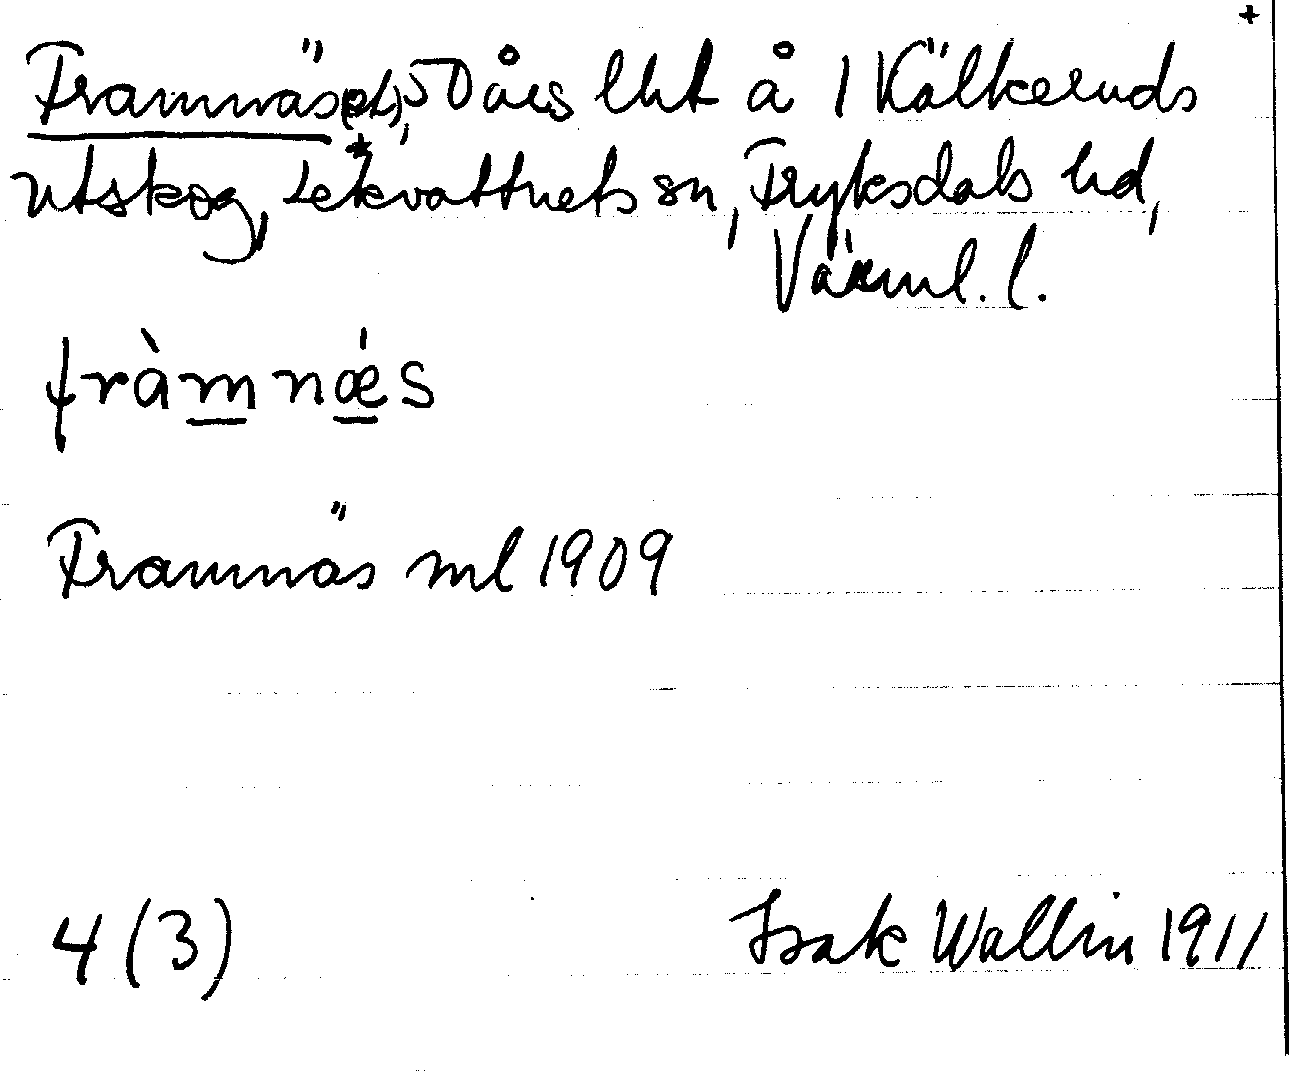 +
Framnäs(et), 50 års lht å 1 Kälkeruds
utskog, Lekvattnets sn, Fryksdals hd,
Värml. l.
fràmnǽs
Framnäs ml 1909
4 (3) Isak Wallin 1911